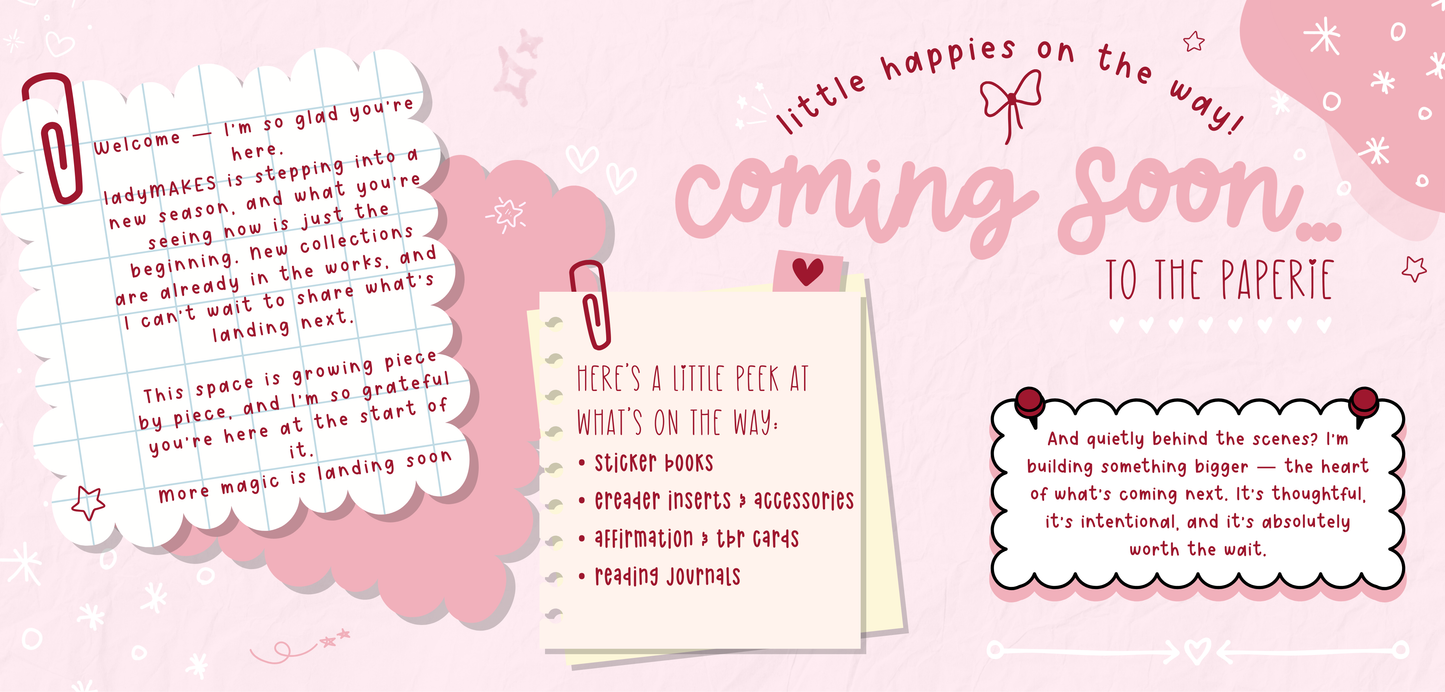 Welcome — I'm so glad you're
here.
ladyMAKES is stepping into a
new season, and what you're
seeing now is just the
beginning. New collections
are already in the works, and
I can't wait to share what's
landing next.
This space is growing piece
by piece, and I'm so grateful
you're here at the start of
it.
more magic is landing soon
little happies on the way!
coming soon...
TO THE PAPERIE
HERE'S A LITTLE PEEK AT
WHAT'S ON THE WAY:
• sticker books
• ereader inserts & accessories
• affirmation & tbr cards
• reading journals
And quietly behind the scenes? I'm
building something bigger — the heart
of what's coming next. It's thoughtful,
it's intentional, and it's absolutely
worth the wait.